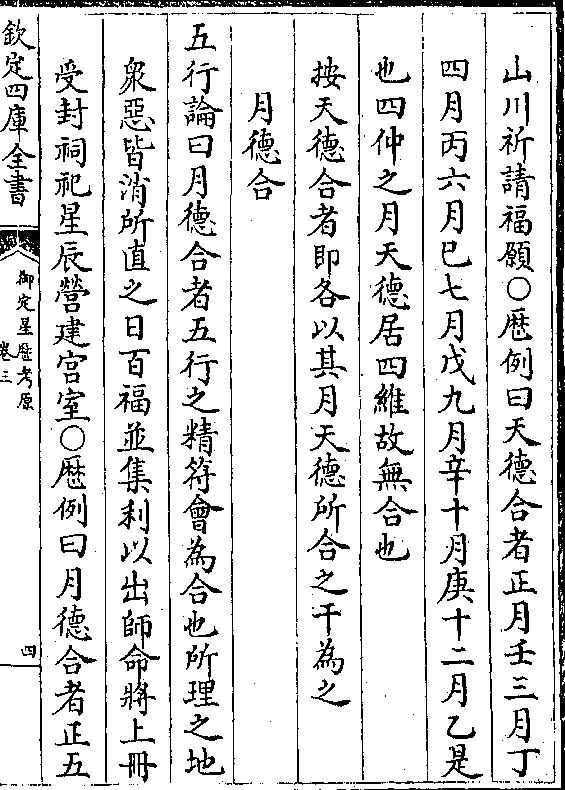 山川祈請福願○厯例曰天德合者正月壬三月丁
四月丙六月巳七月戊九月辛十月庚十二月乙是
也四仲之月天德居四維故無合也
按天德合者即各以其月天德所合之干為之
月德合
五行論曰月德合者五行之精符會為合也所理之地
衆惡皆消所直之日百福並集利以出師命將上冊
受封祠祀星辰營建宫室○厯例曰月德合者正五
欽定四庫全書
御定星厯考原
卷三
四